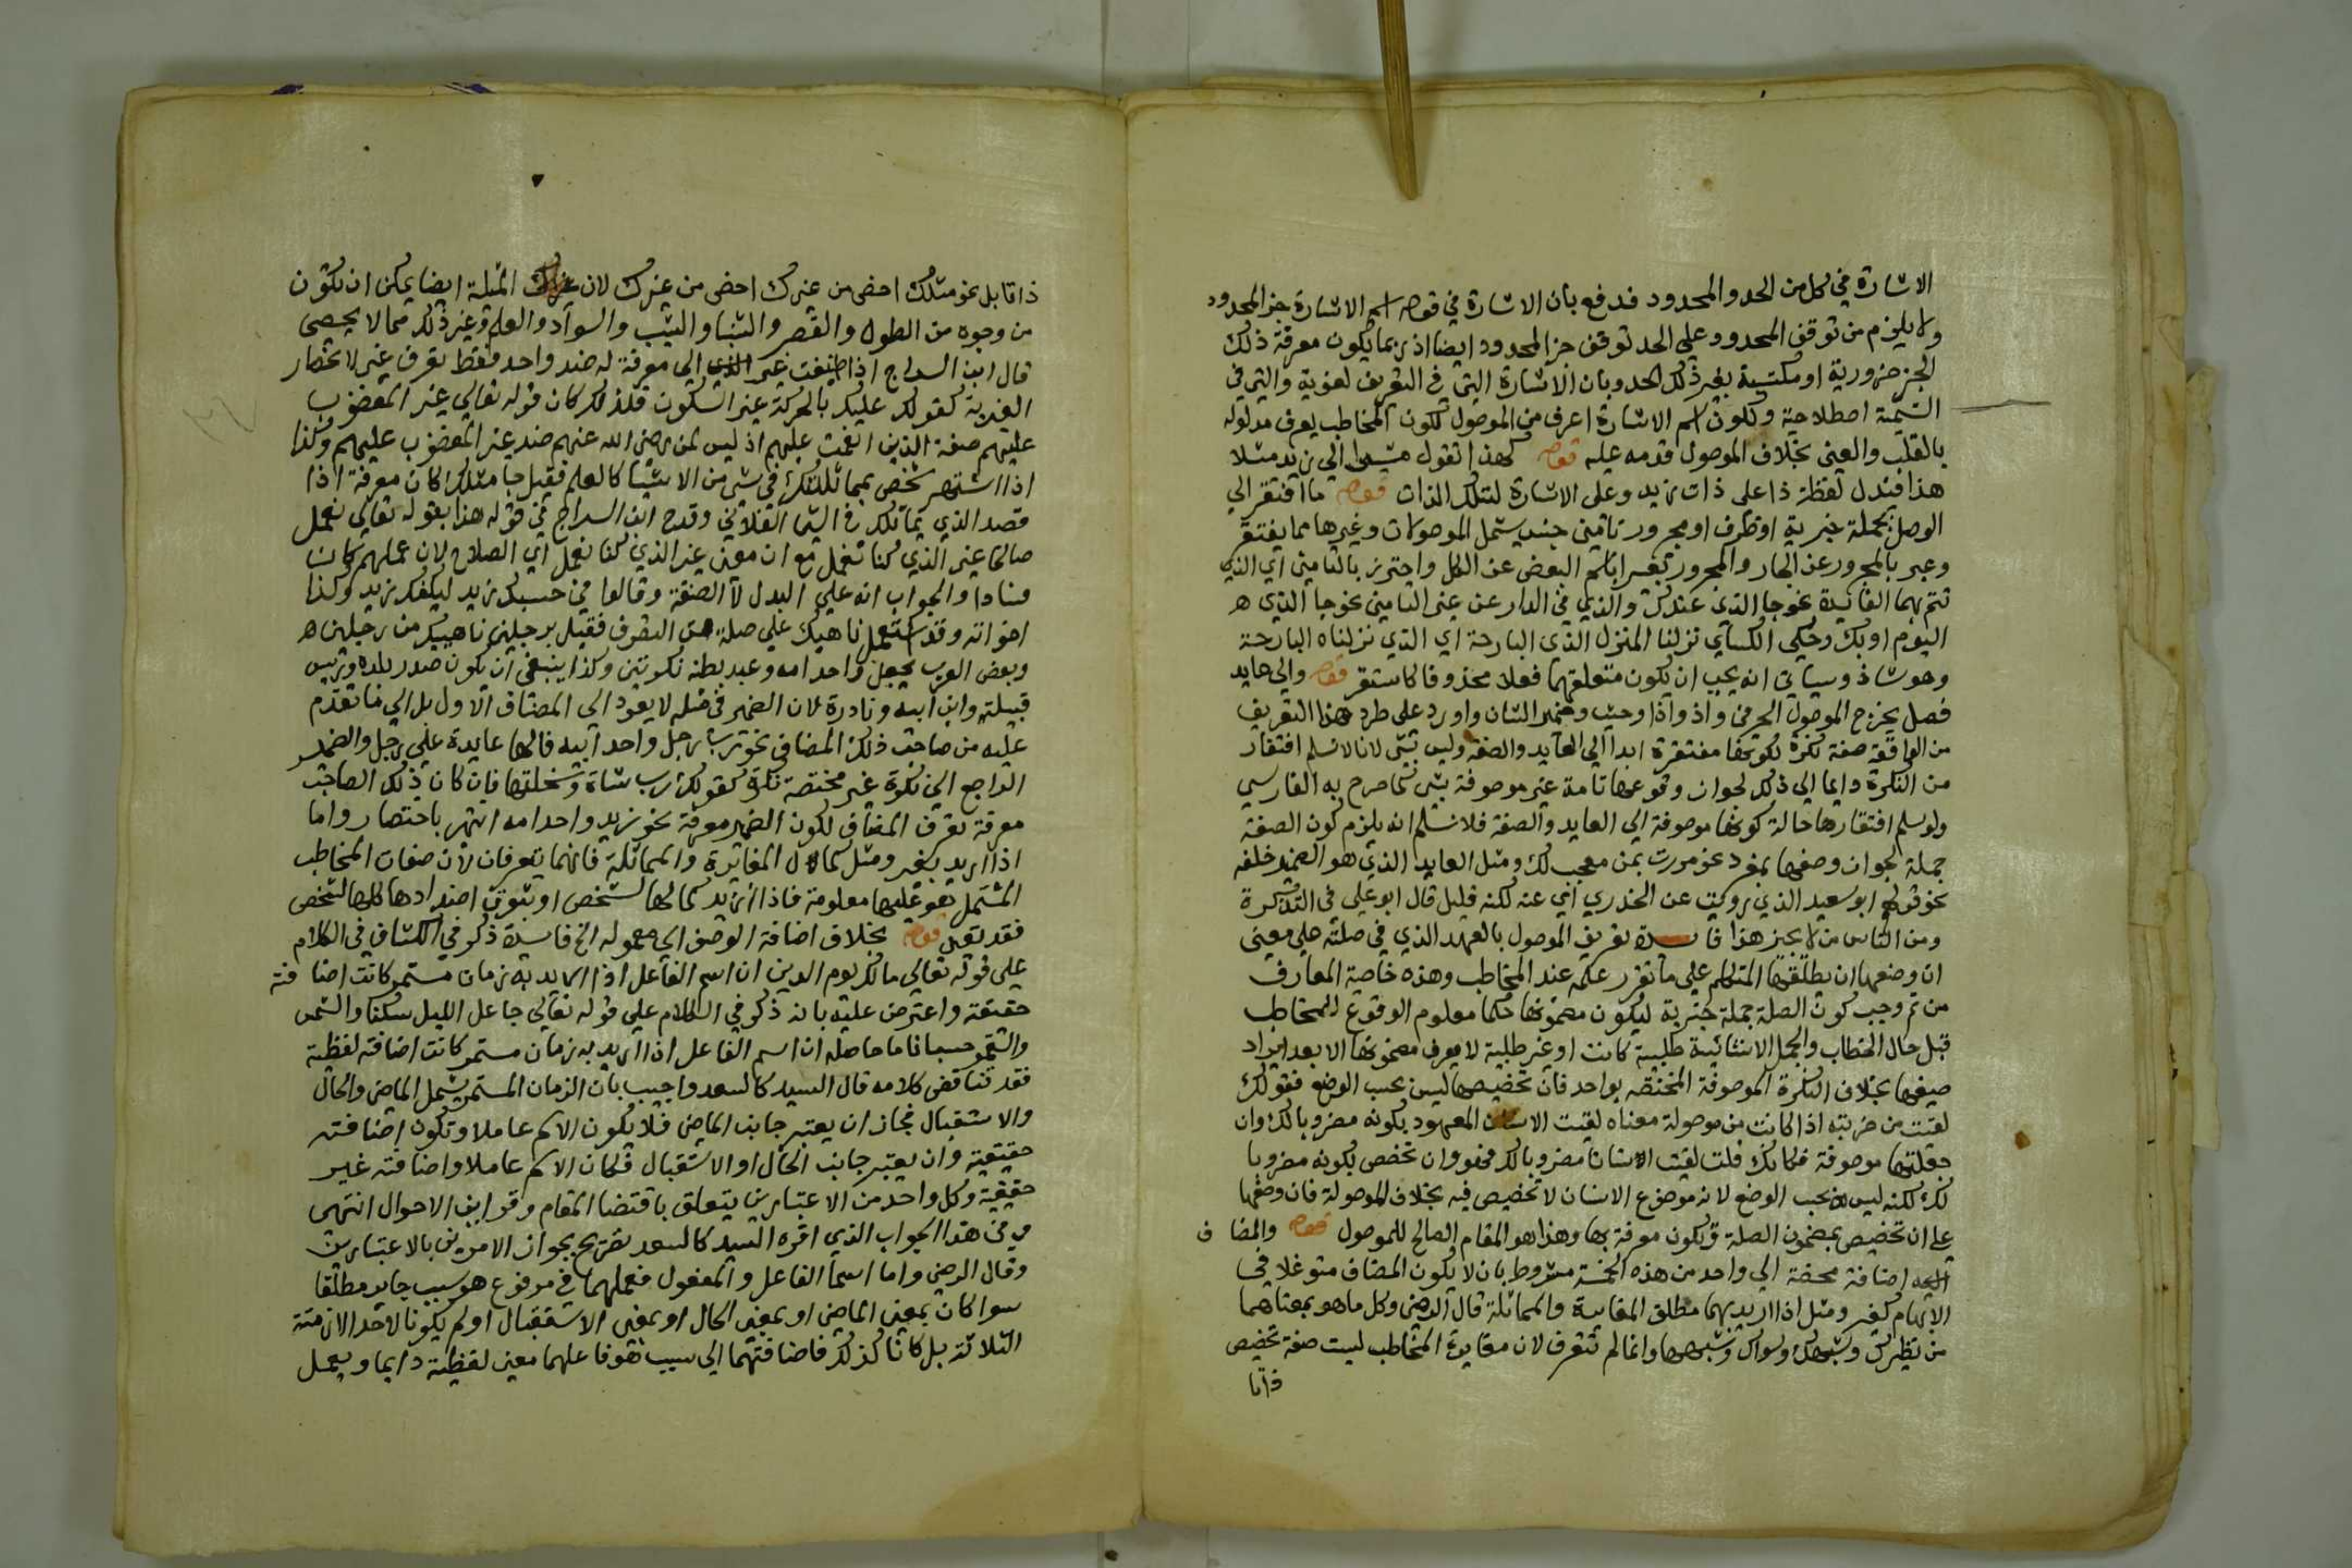 الاشارة في كل من الحد والمحدود فدفع بان الاشارة في قوله اسم الاشارة جز المحدود
ولا يلزم من توقف المحدود على الحد توقف جز المحدود ايضا اذ ربما يكون معرفة ذلك
الجز ضرورية او مكتسبة بغير ذلك الحد وبان الاشارة التي في التعريف لغوية والتي في
التسمية اصطلاحية ولكون اسم الاشارة اعرف من الموصول لكون المخاطب يعرف مدلوله
بالقلب والعين بخلاف الموصول قدمه عليه قوله كهذا تقول مشيرا الى زيد مثلا
هذا فيدل لفظة ذا على ذات زيد وعلى الاشارة لتلك الذات قوله ما افتقر الي
الوصل بجملة خبرية او ظرف او مجرور تامين جنس يشمل الموصولات وغيرها مما يفتقر
وعبر بالمجرور عن الجار والمجرور تعبيرا باسم البعض عن الكل واحترز بالتامين اي الذي
تتم بهما الفائدة نحو جا الذي عندك والذي في الدار عن غير التامين نحو جا الذي
اليوم او بك وحكي الكسآي نزلنا المنزل الذي البارحة اي الذي نزلناه البارحة
وهو شاذ وسياتي انه يجب ان يكون متعلقهما فعلا محذوفا كاستقر قوله والي عايد
فصل يخرج الموصول الحرفي واذ واذا وحيث وضمير الشان واورد على طرد هذا التعريف
من الواقعة صفة نكرة لكونها مفتقرة ابدا الي العايد والصفة وليس بشي لانا لا نسلم افتقار
من النكرة دايما الي ذلك لجواز وقوعها تامة غير موصوفة بشي كما صرح به الفارسي
ولو سلم افتقارها حالة كونها موصوفة الي العايد والصفة فلا نسلم انه يلزم كون الصفة
جملة لجواز وصفها بمفرد نحو مررت بمن معجب لك ومثل العايد الذي هو الضمير خلفه
نحو قولهم ابو سعيد الذي رويت عن الخدري اي عنه لكنه قليل قال ابو علي في التذكرة
ومن الناس من لا يجيز هذا فايدة تعريف الموصول بالعهد الذي في صلته على معنى
ان وضعها ان يطلقها المتكلم على ما تقرر علمه عند المخاطب وهذه خاصية المعارف
من ثم وجب كون الصلة جملة خبرية ليكون مضمونها حكما معلوم الوقوع للمخاطب
قبل حال الخطاب والجمل الانشائية طلبية كانت او غير طلبية لا يعرف مضمونها الا بعد ايراد
صيغها بخلاف النكرة الموصوفة المختصة بواحد فان تخصيصها ليس بحسب الوضع فقولك
لقيت من ضربته اذا كانت من موصولة معناه لقيت الانسان المعهود بكونه مضروبا لك وان
جعلتها موصوفة فكانك قلت لقيت انسانا مضروبا لك فهو وان تخصص بكونه مضروبا
لك لكنه ليس بحسب الوضع لانه موضوع لانسان لا تخصيص فيه بخلاف الموصولة فان وضعها
على ان تخصيص بمضمون الصلة وتكون معرفة بها وهذا هو المقام الصالح للموصول قوله والمضاف
اضافة محضة الي واحد من هذه الخمسة مشروط بان لا يكون المضاف متوغلا في
الابهام كغير ومثل اذا اريد بهما مطلق المغايرة والمماثلة قال الرضي وكل ما هو بمعناهما
من نظيرك وشبهك وسواك وشبهها وانما لم تتعرف لان مغايرة المخاطب ليست صفة تخصص
ذاتا
ذاتا بل نحو مثلك اخص من غيرك احض من غيرك لان المثلية ايضا يمكن ان تكون
من وجوه من الطول والقصر والشباب والشيب والسواد والعلم وغير ذلك مما لا يحصى
قال ابن السراج اذا اضيفت غير الي معرفة له ضد واحد فقط تعرف غير لانحصار
الغيرية كقولك عليك بالحركة غير السكون فلذلك كان قوله تعالي غير المغضوب
عليهم صفة الذين انعمت عليهم اذ ليس لمن رضي الله عنهم ضد غير المغضوب عليهم وكذا
اذا اشتهر شخص بمماثلتك في شي من الاشيا كالعلم فقيل جا مثلك كان معرفة اذا
قصد الذي يماثلك في الشي الفلاني وقدح ابن السراج في قوله هذا بقوله تعالي نعمل
صالحا غير الذي كنا نعمل مع ان معنى غير الذي كنا نعمل اي الصلاح لان عملهم كان
فسادا والجواب انه علي البدل لا الصفة وقالوا في حسبك زيد ليكفك زيد وكذا
اخواته وقد استعمل ناهيك علي صلة التعرف فقيل برجلين ناهيك من رجلين
وبعض العرب يجعل واحد امه وعبد بطنه نكرتين وكذا ينبغي ان يكون صدر بلده ورئيس
قبيلته وابن ابيه ونادرة لان الضمير في مثله لا يعود الي المضاف الاول بل الي ما تقدم
عليه من صاحب ذلك المضاف نحو رب رجل واحد ابيه فالها عايدة علي رجل والضمير
الراجع الي نكرة غير مختصة نكرة كقولك رب شاة وسخلتها فان كان ذلك الصاحب
معرفة تعرف المضاف لكون الضمير معرفة نحو زيد واحد امه انتهى باختصار واما
اذا اريد بغير ومثل كمال المغايرة والمماثلة فانهما يتعرفان لان صفات المخاطب
المشتمل هو عليها معلومة فاذا اريد كمالها لشخص او ثبوت اضدادها كلها لشخص
فقد تعين قوله بخلاف اضافة الوصف الي معموله الخ فايدة ذكر في الكشاف في الكلام
على قوله تعالي مالك يوم الدين ان اسم الفاعل اذا اريد به زمان مستمر كانت اضافته
حقيقة واعترض عليه بانه ذكر في الكلام علي قوله تعالي جاعل الليل سكنا والشمس
والقمر حسبانا ما حاصله ان اسم الفاعل اذا اريد به زمان مستمر كانت اضافته لفظية
فقد تناقض كلامه قال السيد كالسعد واجيب بان الزمان المستمر يشمل الماضي والحال
والاستقبال فجاز ان يعتبر جانب الماضي فلا يكون الاسم عاملا وتكون اضافته
حقيقية وان يعتبر جانب الحال او الاستقبال فكان الاسم عاملا واضافته غير
حقيقية وكل واحد من الاعتبارين يتعلق باقتضا المقام وقراين الاحوال انتهى
في هذا الجواب الذي اقره السيد كالسعد تصريح بجواز الامرين بالاعتبارين
وقال الرضي واما اسما الفاعل والمفعول فعملهما في مرفوع هو سبب جايز مطلقا
سوا كان بمعنى الماضي او بمعنى الحال او بمعنى الاستقبال او لم يكونا لاحد الازمنة
الثلاثة بل كانا كذلك فاضافتهما الي سبب هو فاعلهما معنى لفظية دايما ويعمل